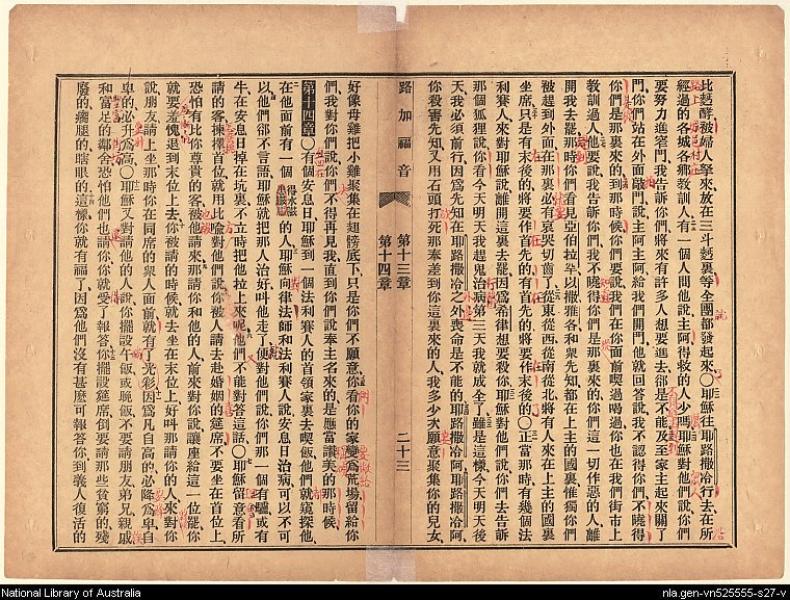 比麪酵、被婦人拏來放在三斗麪裏等全團都發起來○耶穌往耶路撒冷行去在所
經過的各城各鄉教訓人有一個人問他說主阿得救的人少嗎耶穌對他們說你們
要努力進窄門我告訴你們將來有許多人想要進去卻是不能及至家主起來關了
門你們站在外面敲門說主阿主阿給我們開門他就回答說我不認得你們不曉得
你們是那裏來的到那時候你們要說我們在你面前喫過喝過你也在我們街市上
教訓過人他要說我告訴你們我不曉得你們是那裏來的你們這一切作惡的人離
開我去罷那時你們看見亞伯拉罕以撒雅各和衆先知都在上主的國裏惟獨你們
被趕到外面在那裏必有哀哭切齒了從東從西從南從北將有人來在上主的國裏
坐席只是有末後的將要作首先的有首先的將要作末後的○正當那時有幾個法
利賽人來對耶穌說離開這裏去罷因爲希律想要殺你耶穌對他們說你們去告訴
那個狐狸說你看今天明天我趕鬼治病第三天我就成全了雖是這樣今天明天後
天我必須前行因爲先知在耶路撒冷之外喪命是不能的耶路撒冷阿耶路撒冷阿
你殺害先知又用石頭打死那奉差到你這裏來的人我多少次願意聚集你的兒女
路加福音 第十三章 第十四章 二十三
好像母雞把小雞聚集在翅膀底下只是你們不願意你看你的家變爲荒場留給你
們我對你們說你們不得再見我直到你們說奉主名來的是應當讚美的那時候
第十四章○有個安息日耶穌到一個法利賽人的首領家裏去喫飯他們就窺探他
在他面前有一個得水臌的人耶穌向律法師和法利賽人說安息日治病可以不可
以他們卻不言語耶穌就把那人治好叫他走了便對他們說你們那一個有驢或有
牛在安息日掉在坑裏不立時把他拉上來呢他們不能對答這話○耶穌留意看所
請的客揀擇首位就用比喻對他們說你被人請去赴婚姻的筵席不要坐在首位上
恐怕有比你尊貴的客被他請來那請你和他的人前來對你說讓座給這一位罷你
就要羞愧退到末位上去你被請的時候就去坐在末位上好叫那請你的人來對你
說朋友請上坐那時你在同席的衆人面前就有了光彩因爲凡自高的必降爲卑自
卑的必升爲高○耶穌又對請他的人說你擺設午飯或晚飯不要請朋友弟兄親戚
和富足的鄰舍恐怕他們也請你你就受了報答你擺設筵席倒要請那些貧窮的殘
廢的瘸腿的瞎眼的這樣你就有福了因爲他們沒有甚麽可報答你到義人復活的
National Library of Australia
nla.gen-vn525555-s27-v